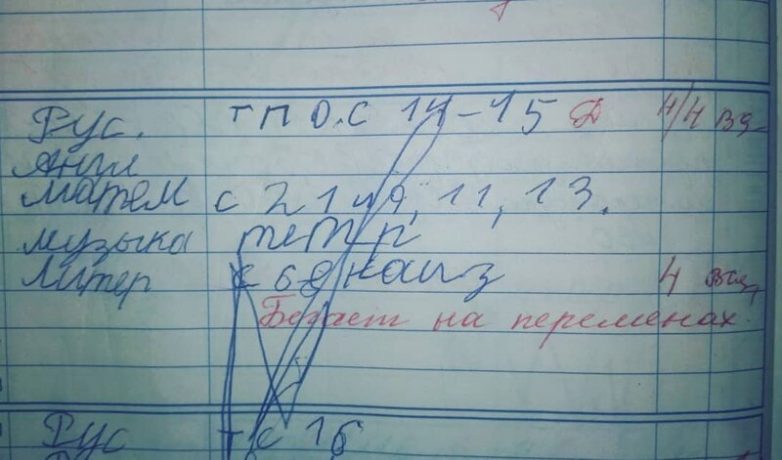 Рус. ТПО.С 14-15 Д 4/4
Англ
Матем с 21 №9, 11, 13.
Музыка тетр
Литер с 68 наиз 4
Бегает на переменах.
Рус т с 16